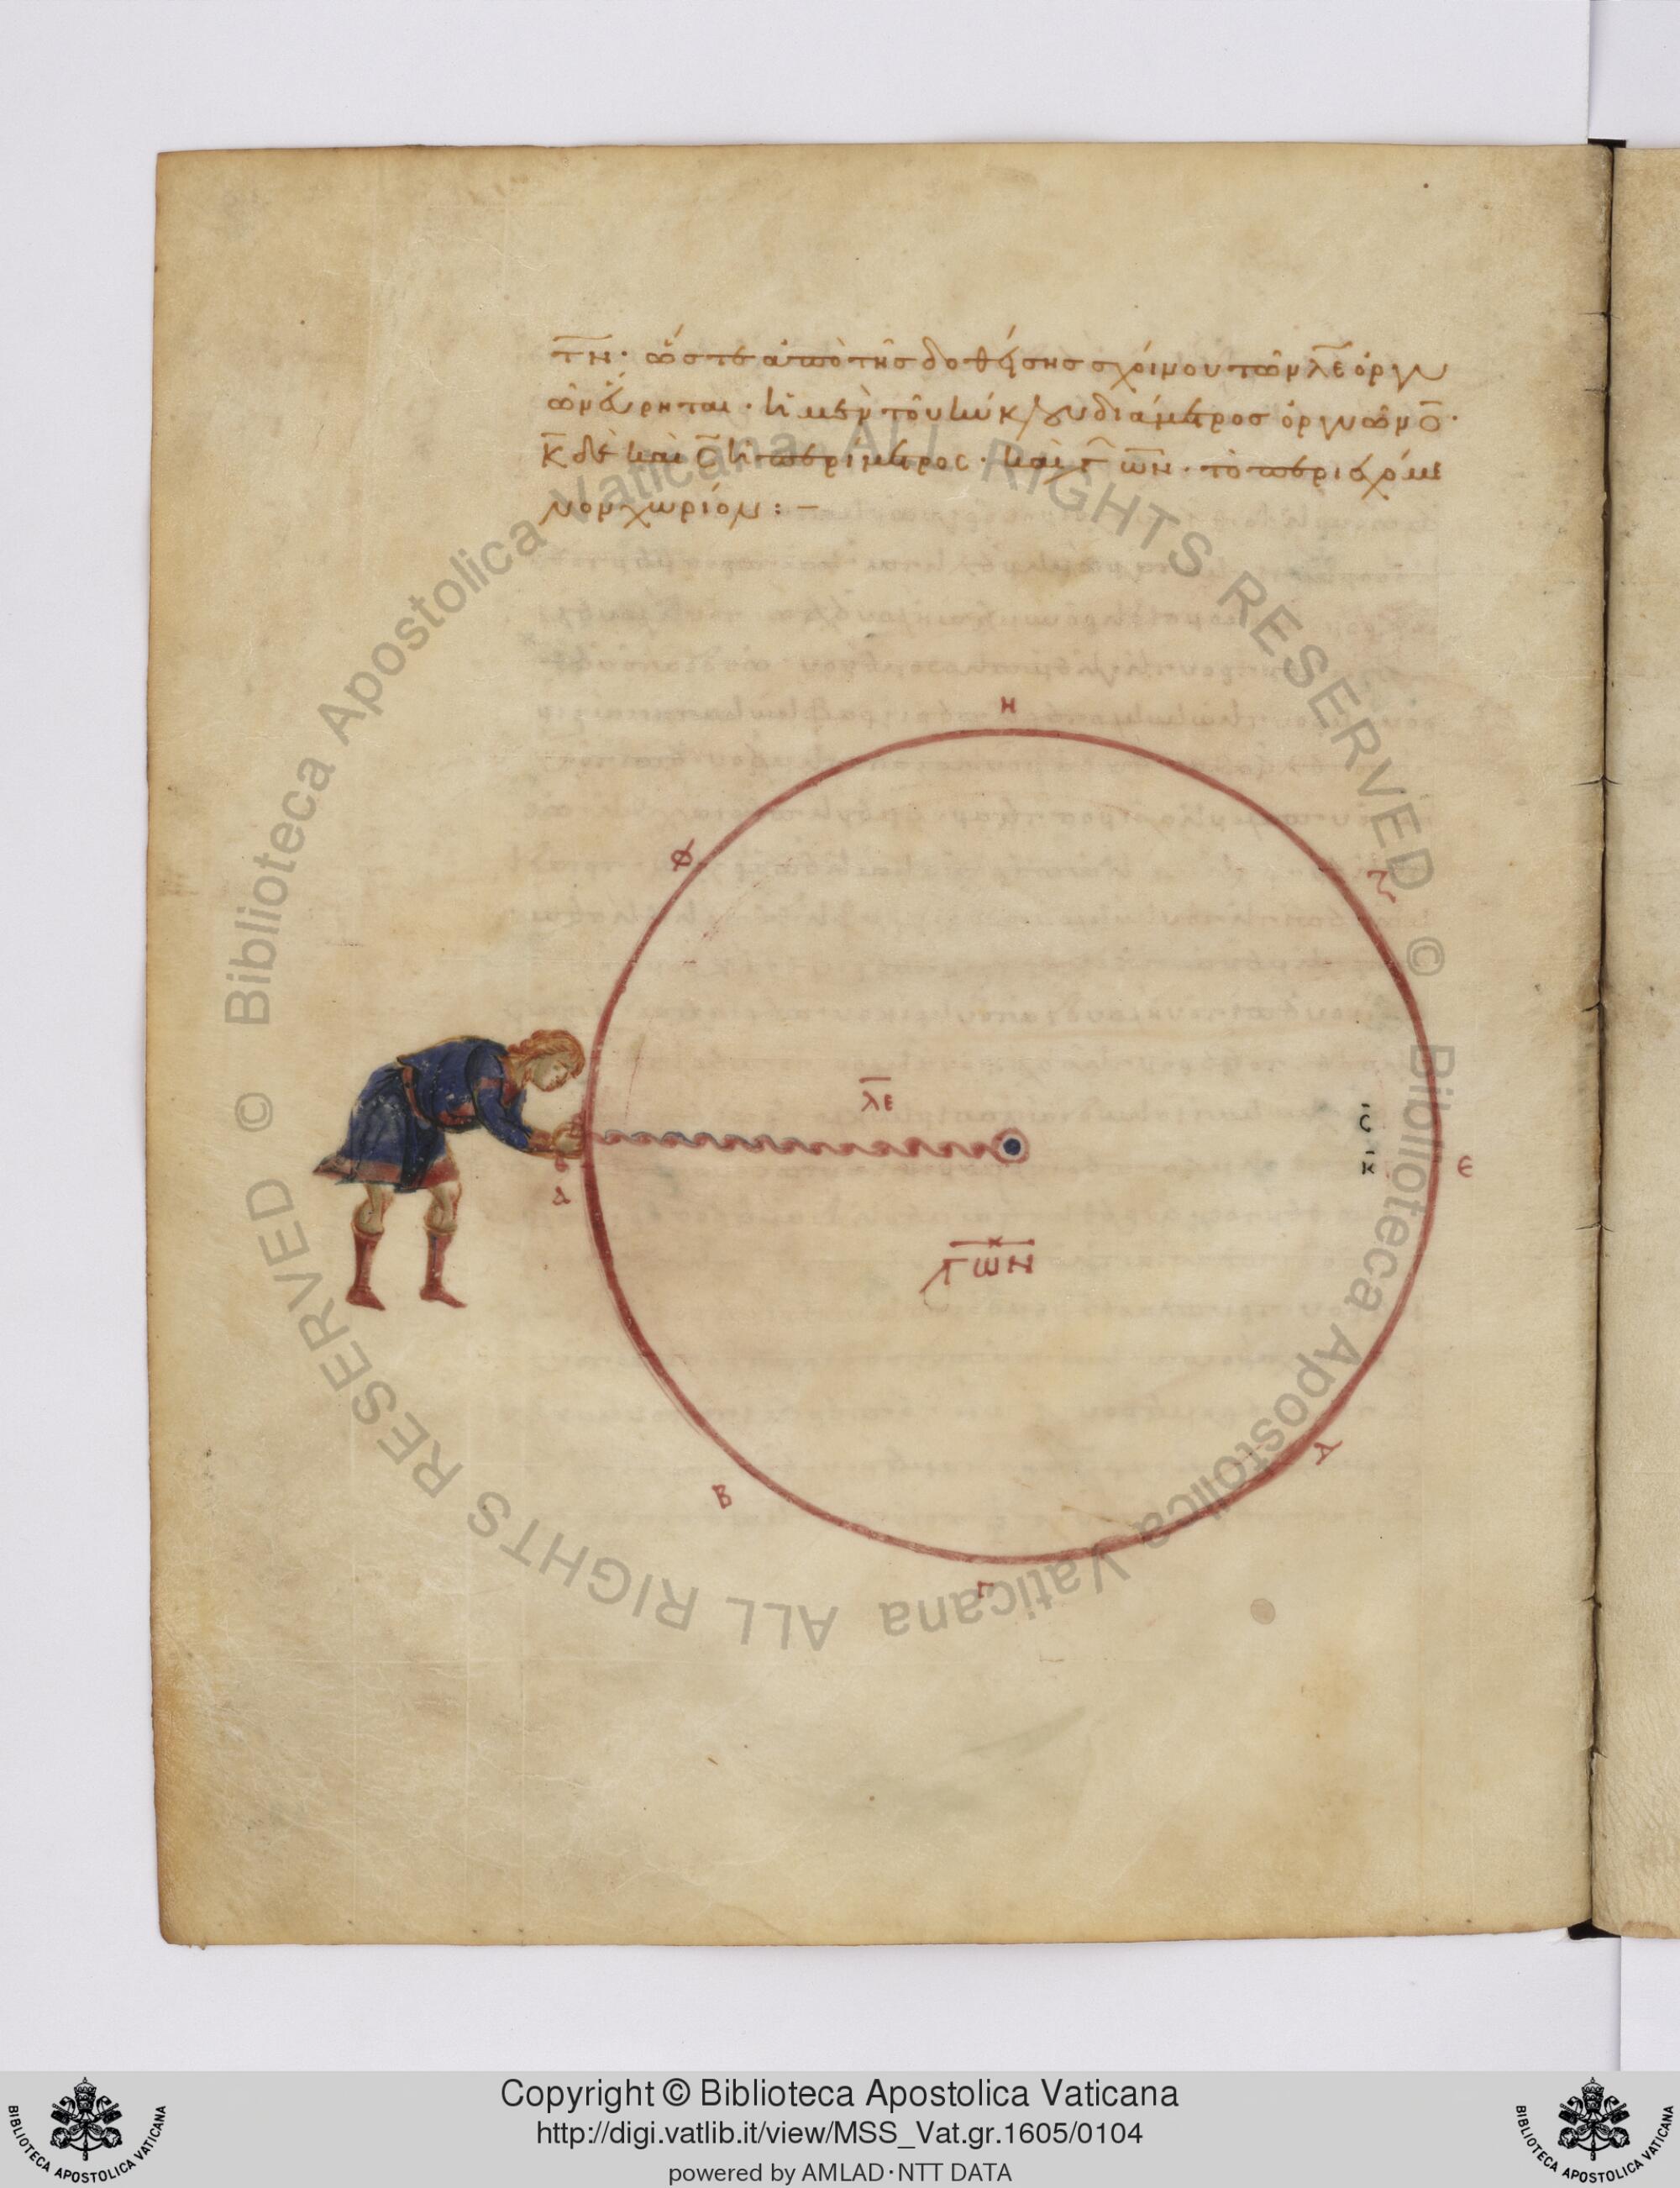 τν· ὥστε ἀπὸ τῆς δοθείσης σχοίνου τῶν λε ὀργυ
ῶν εὕρηται· ἡ μὲν τοῦ κύκλου διάμετρος ὀργυῶν ο·
κ δὲ καὶ σ ἡ περίμετρος· καὶ ͵γων· τὸ περιεχόμε
νον χωρίον:–
Η
Θ
Ζ
λε
ς
κ
Ε
Α
͵γων
Δ
Β
Γ
© Biblioteca Apostolica Vaticana ALL RIGHTS RESERVED
© Biblioteca Apostolica Vaticana ALL RIGHTS RESERVED
BIBLIOTECA APOSTOLICA VATICANA
Copyright © Biblioteca Apostolica Vaticana
http://digi.vatlib.it/view/MSS_Vat.gr.1605/0104
powered by AMLAD·NTT DATA
BIBLIOTECA APOSTOLICA VATICANA